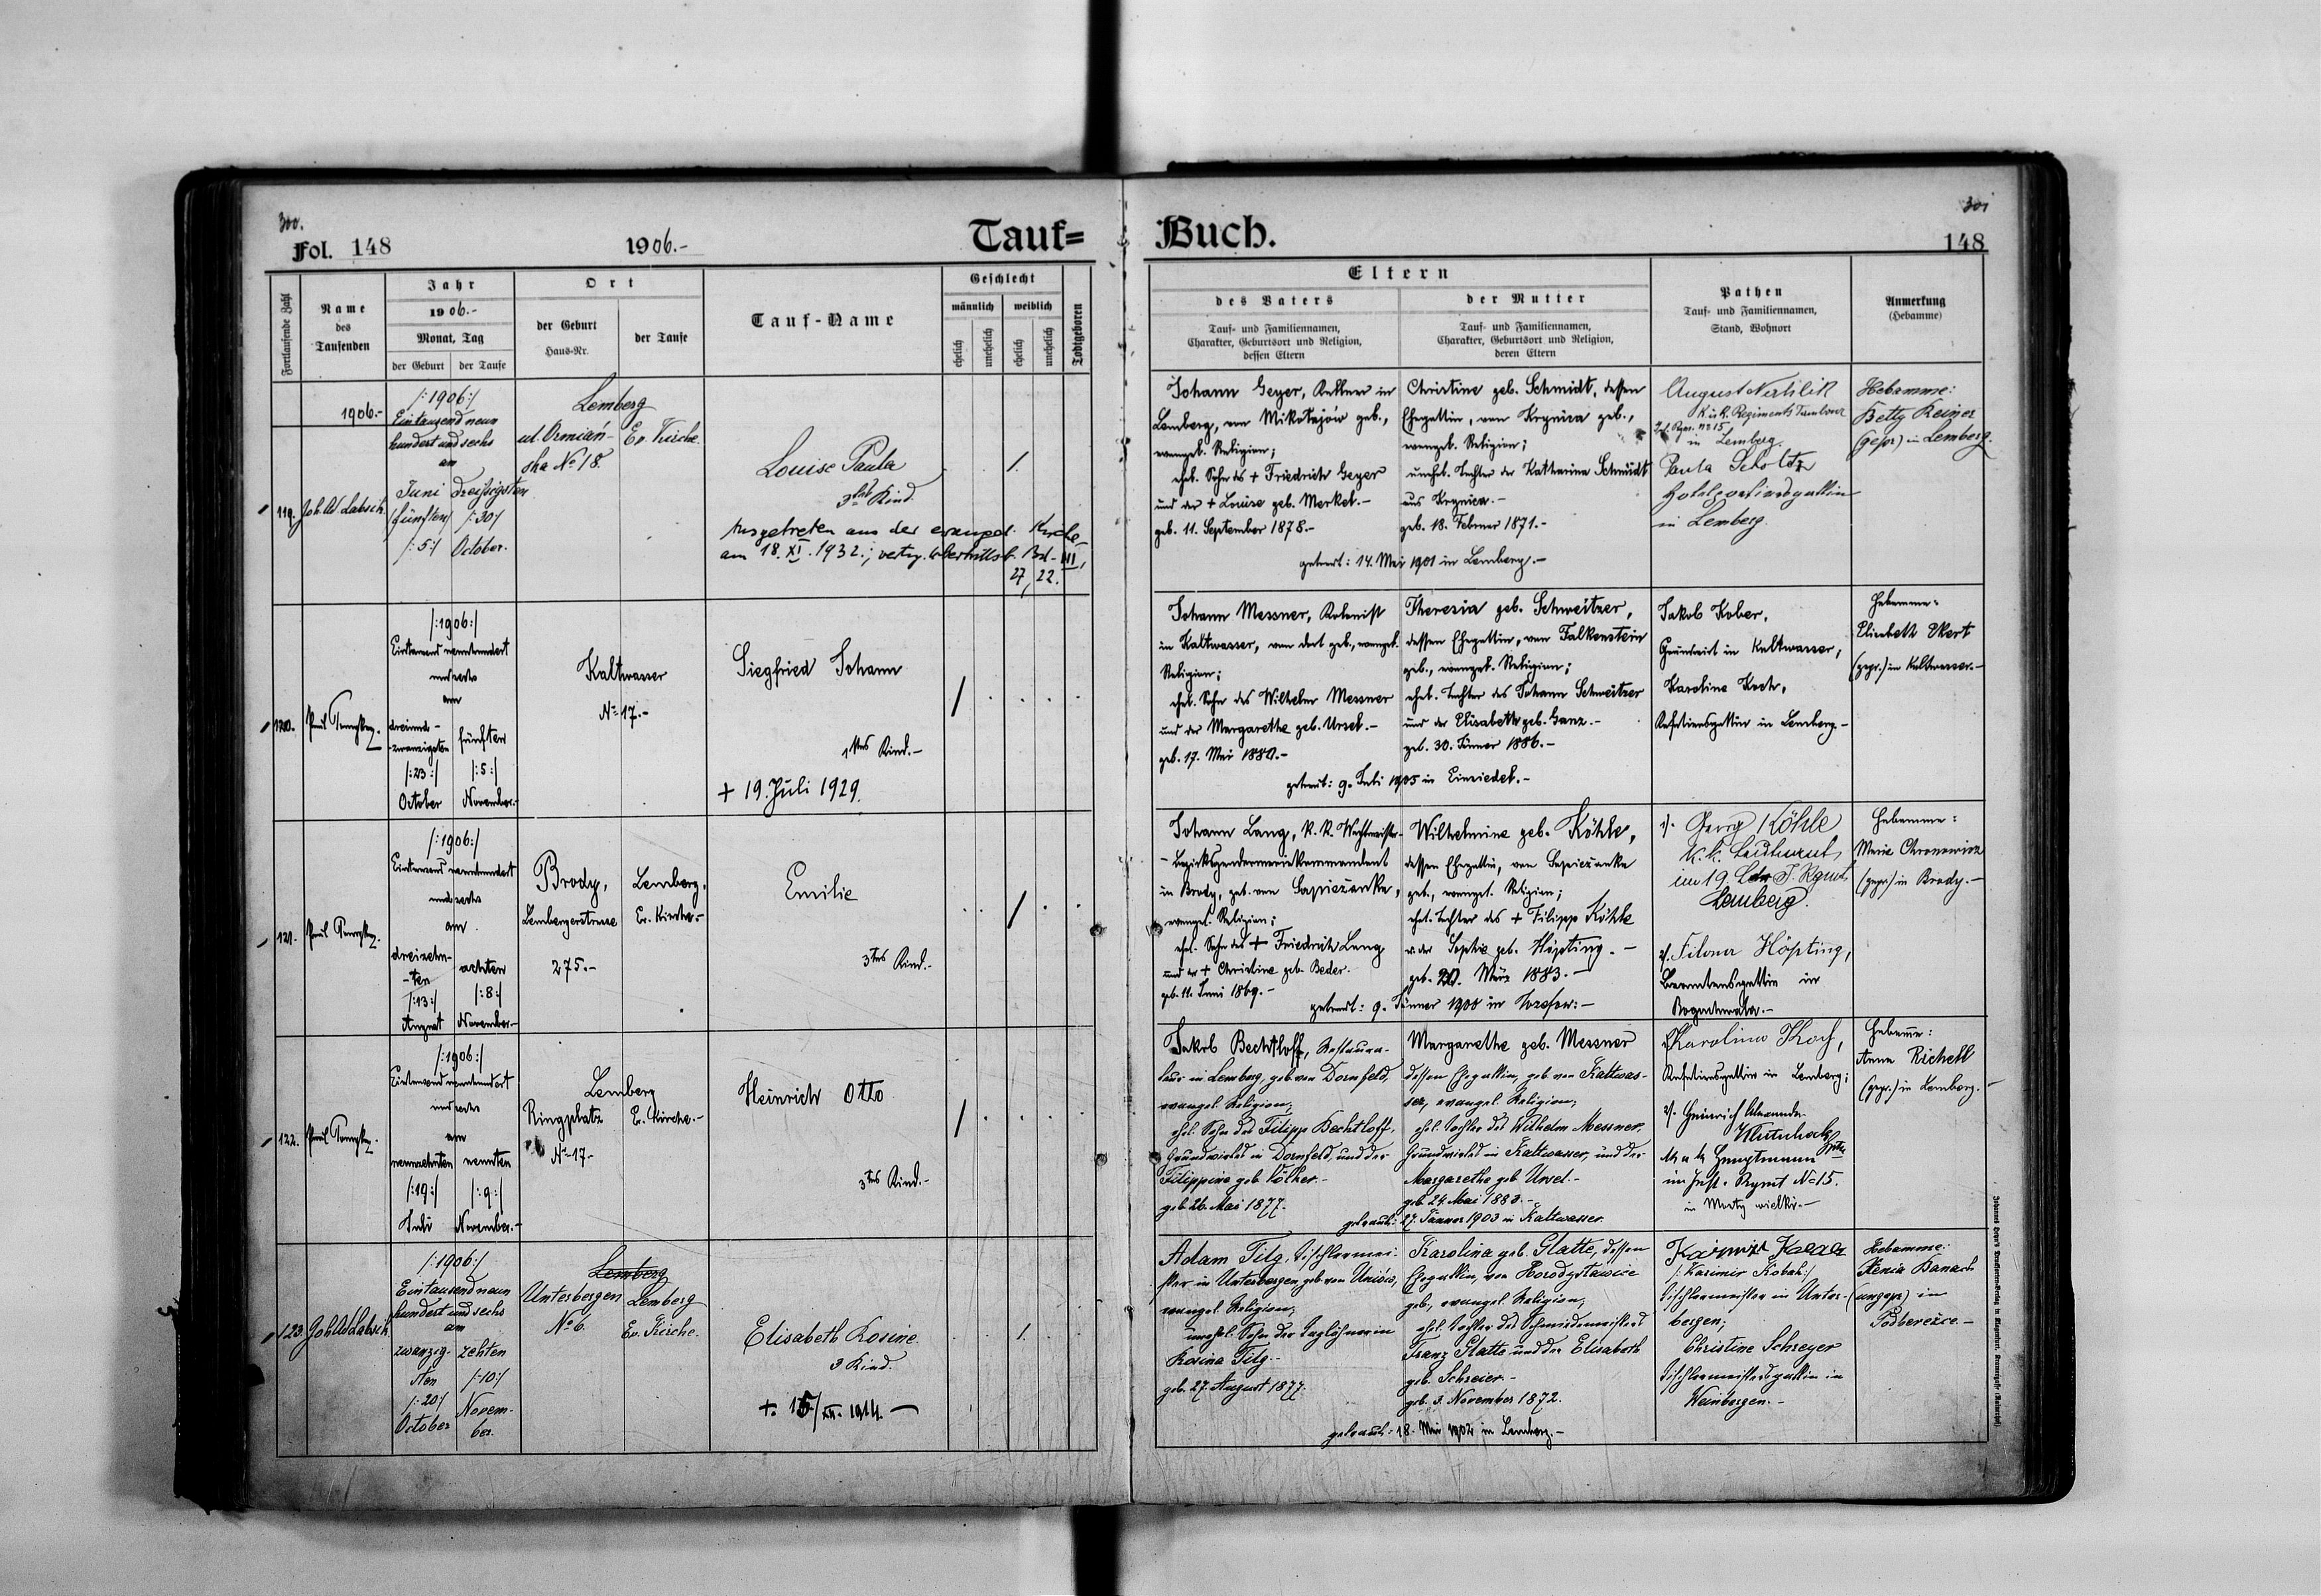 300.
Fol. 148
1906.-
Tauf=
Buch.
301
148
Fortlaufende Zahl
Name
des
Taufenden
Jahr
1906.-
Monat, Tag
der Geburt
der Taufe
Ort
der Geburt
Haus-Nr.
der Taufe
Tauf-Name
Geschlecht
männlich
weiblich
ehelich
unehelich
ehelich
unehelich
Todtgeboren
Eltern
des Vaters
Tauf- und Familiennamen,
Charakter, Geburtsort und Religion,
dessen Eltern
der Mutter
Tauf- und Familiennamen,
Charakter, Geburtsort und Religion,
deren Eltern
Pathen
Tauf- und Familiennamen,
Stand, Wohnort
Anmerkung
(Hebamme)
1906.-
119.
/:1906:/
Eintausend neun
hundert und sechs
am
Juni
fünften
/:5:/
dreißigsten
/:30:/
October.
Lemberg
ul. Ormiań-
ska No 18.
Ev. Kirche.
Louise Paula
3tes Kind.
Ausgetreten aus der evangel. Kirche
am 18. XI. 1932.;
Bd. III,
27, 22.
Johann Geyer, Kellner in
Lemberg, von Mikołajów geb.,
evangel. Religion;
ehel. Sohn des + Friedrich Geyer
und der + Louise geb. Merkel.-
geb. 11. September 1878.-
Christine geb. Schmidt, dessen
Ehegattin, von Krynica geb.,
evangel. Religion;
unehel. Tochter der Katharina Schmidt
aus Krynica.-
geb. 18. Februar 1871.-
getraut: 14. Mai 1901 in Lemberg.-
August
K.u.K. Regiments
No 15
in Lemberg.
Paula Scholtz
in Lemberg.
Hebamme:
Betty Reiner
(gepr.) in Lemberg.
120.
/:1906:/
Eintausend neunhundert
und sechs
am
dreiund-
-zwanzigsten
/:23:/
October
fünften
/:5:/
November.-
Kaltwasser
No 17.-
Siegfried Johann
1tes Kind.-
+ 19. Juli 1929.
Johann Messner, Kolonist
in Kaltwasser, von dort geb., evangel.
Religion;
ehel. Sohn des Wilhelm Messner
und der Margarethe geb. Ursel.-
geb. 17. Mai 1880.-
Theresia geb. Schweitzer,
dessen Ehegattin, von Falkenstein
geb., evangel. Religion;
ehel. Tochter des Johann Schweitzer
und der Elisabeth geb. Ganz.-
geb. 30. Jänner 1886.-
getraut: 9. Juli 1905 in Einsiedel.-
Jakob Kober,
Grundwirt in Kaltwasser,
Karoline Koch,
in Lemberg.-
Hebamme:
Elisabeth Ekert
(gepr.) in Kaltwasser.-
121.
/:1906:/
Eintausend neunhundert
und sechs
am
dreizehn-
-ten
/:13:/
August
achten
/:8:/
November.-
Brody,
Lembergerstrasse
275.-
Lemberg,
Ev. Kirche.-
Emilie
3tes Kind.-
Johann Lang, k.k. Wachtmeister-
-Bezirksgendarmeriekommandant
in Brody, geb. von Sapieżanka,
evangel. Religion;
ehel. Sohn des + Friedrich Lang
und der + Christine geb. Beder.
geb. 11. Juni 1869.-
Wilhelmine geb. Köhle,
dessen Ehegattin, von Sapieżanka
geb., evangel. Religion;
ehel. Tochter des + Filipp Köhle
u. der Sophie geb. Höpting.-
geb. 20. März 1883.-
getraut: 9. Jänner 1900 in Józefów.-
1/. Georg Köhle
k.k. Leutnant
im 19. Ldw. I. Rgmt.
Lemberg.
2/. Filona Höpting,
Beamtensgattin in
Hebamme:
Marie Chronowicz
(gepr.) in Brody.-
122.
/:1906:/
Eintausend neunhundert
und sechs
am
neunzehnten
/:19:/
Juli
neunten
/:9:/
November.-
Lemberg
Ringplatz
No 17.-
Ev. Kirche.-
Heinrich Otto
3tes Kind.-
Jakob Bechtloff, Restaura-
teur in Lemberg, geb. von Dornfeld,
evangel. Religion;
ehel. Sohn des Filipp Bechtloff,
Grundwirtes in Dornfeld, und der
Filippine geb. Völker.-
geb. 26. Mai 1877.
Margarethe geb. Messner
dessen Ehegattin, geb. von Kaltwas-
ser, evangel. Religion;
ehel. Tochter des Wilhelm Messner,
Grundwirtes in Kaltwasser, und der
Margarethe geb. Ursel.-
geb. 24. Mai 1883.-
getraut: 27. Jänner 1903 in Kaltwasser.
1/. Karolina Koch,
in Lemberg;
2/. Heinrich Alexander
k.u.k. Hauptmann
im Inft. Rgmt No 15.
in Mosty wielkie.-
Hebamme:
Anna Richell
(gepr.) in Lemberg.-
123.
/:1906:/
Eintausend neun
hundert und sechs
am
zwanzig-
sten
/:20:/
October
zehten
/:10:/
Novem-
ber.
Lemberg
Unterbergen
No 6.
Lemberg
Ev. Kirche.
Elisabeth Rosine
3 Kind.
+. 15/XII. 1914.-
Adam Tilg, Tischlermei-
ster in Unterbergen, geb. von Uniów,
evangel. Religion;
unehel. Sohn der Taglöhnerin
Rosina Tilg.-
geb. 27. August 1877.
Karolina geb. Glatte, dessen
Ehegattin, von Horodysławice
geb., evangel. Religion;
ehel. Tochter des Schmiedemeisters
Franz Glatte und der Elisabeth
geb. Schreier.-
geb. 3. November 1872.
getraut: 18. Mai 1902 in Lemberg.-
/:Kasimir Kobak:/
Tischlermeister in Unter-
bergen;
Christine Schreyer
Tischlermeistersgattin in
Weinbergen.-
Hebamme:
Xenia Banach
(ungepr.) in
Podberezce.-